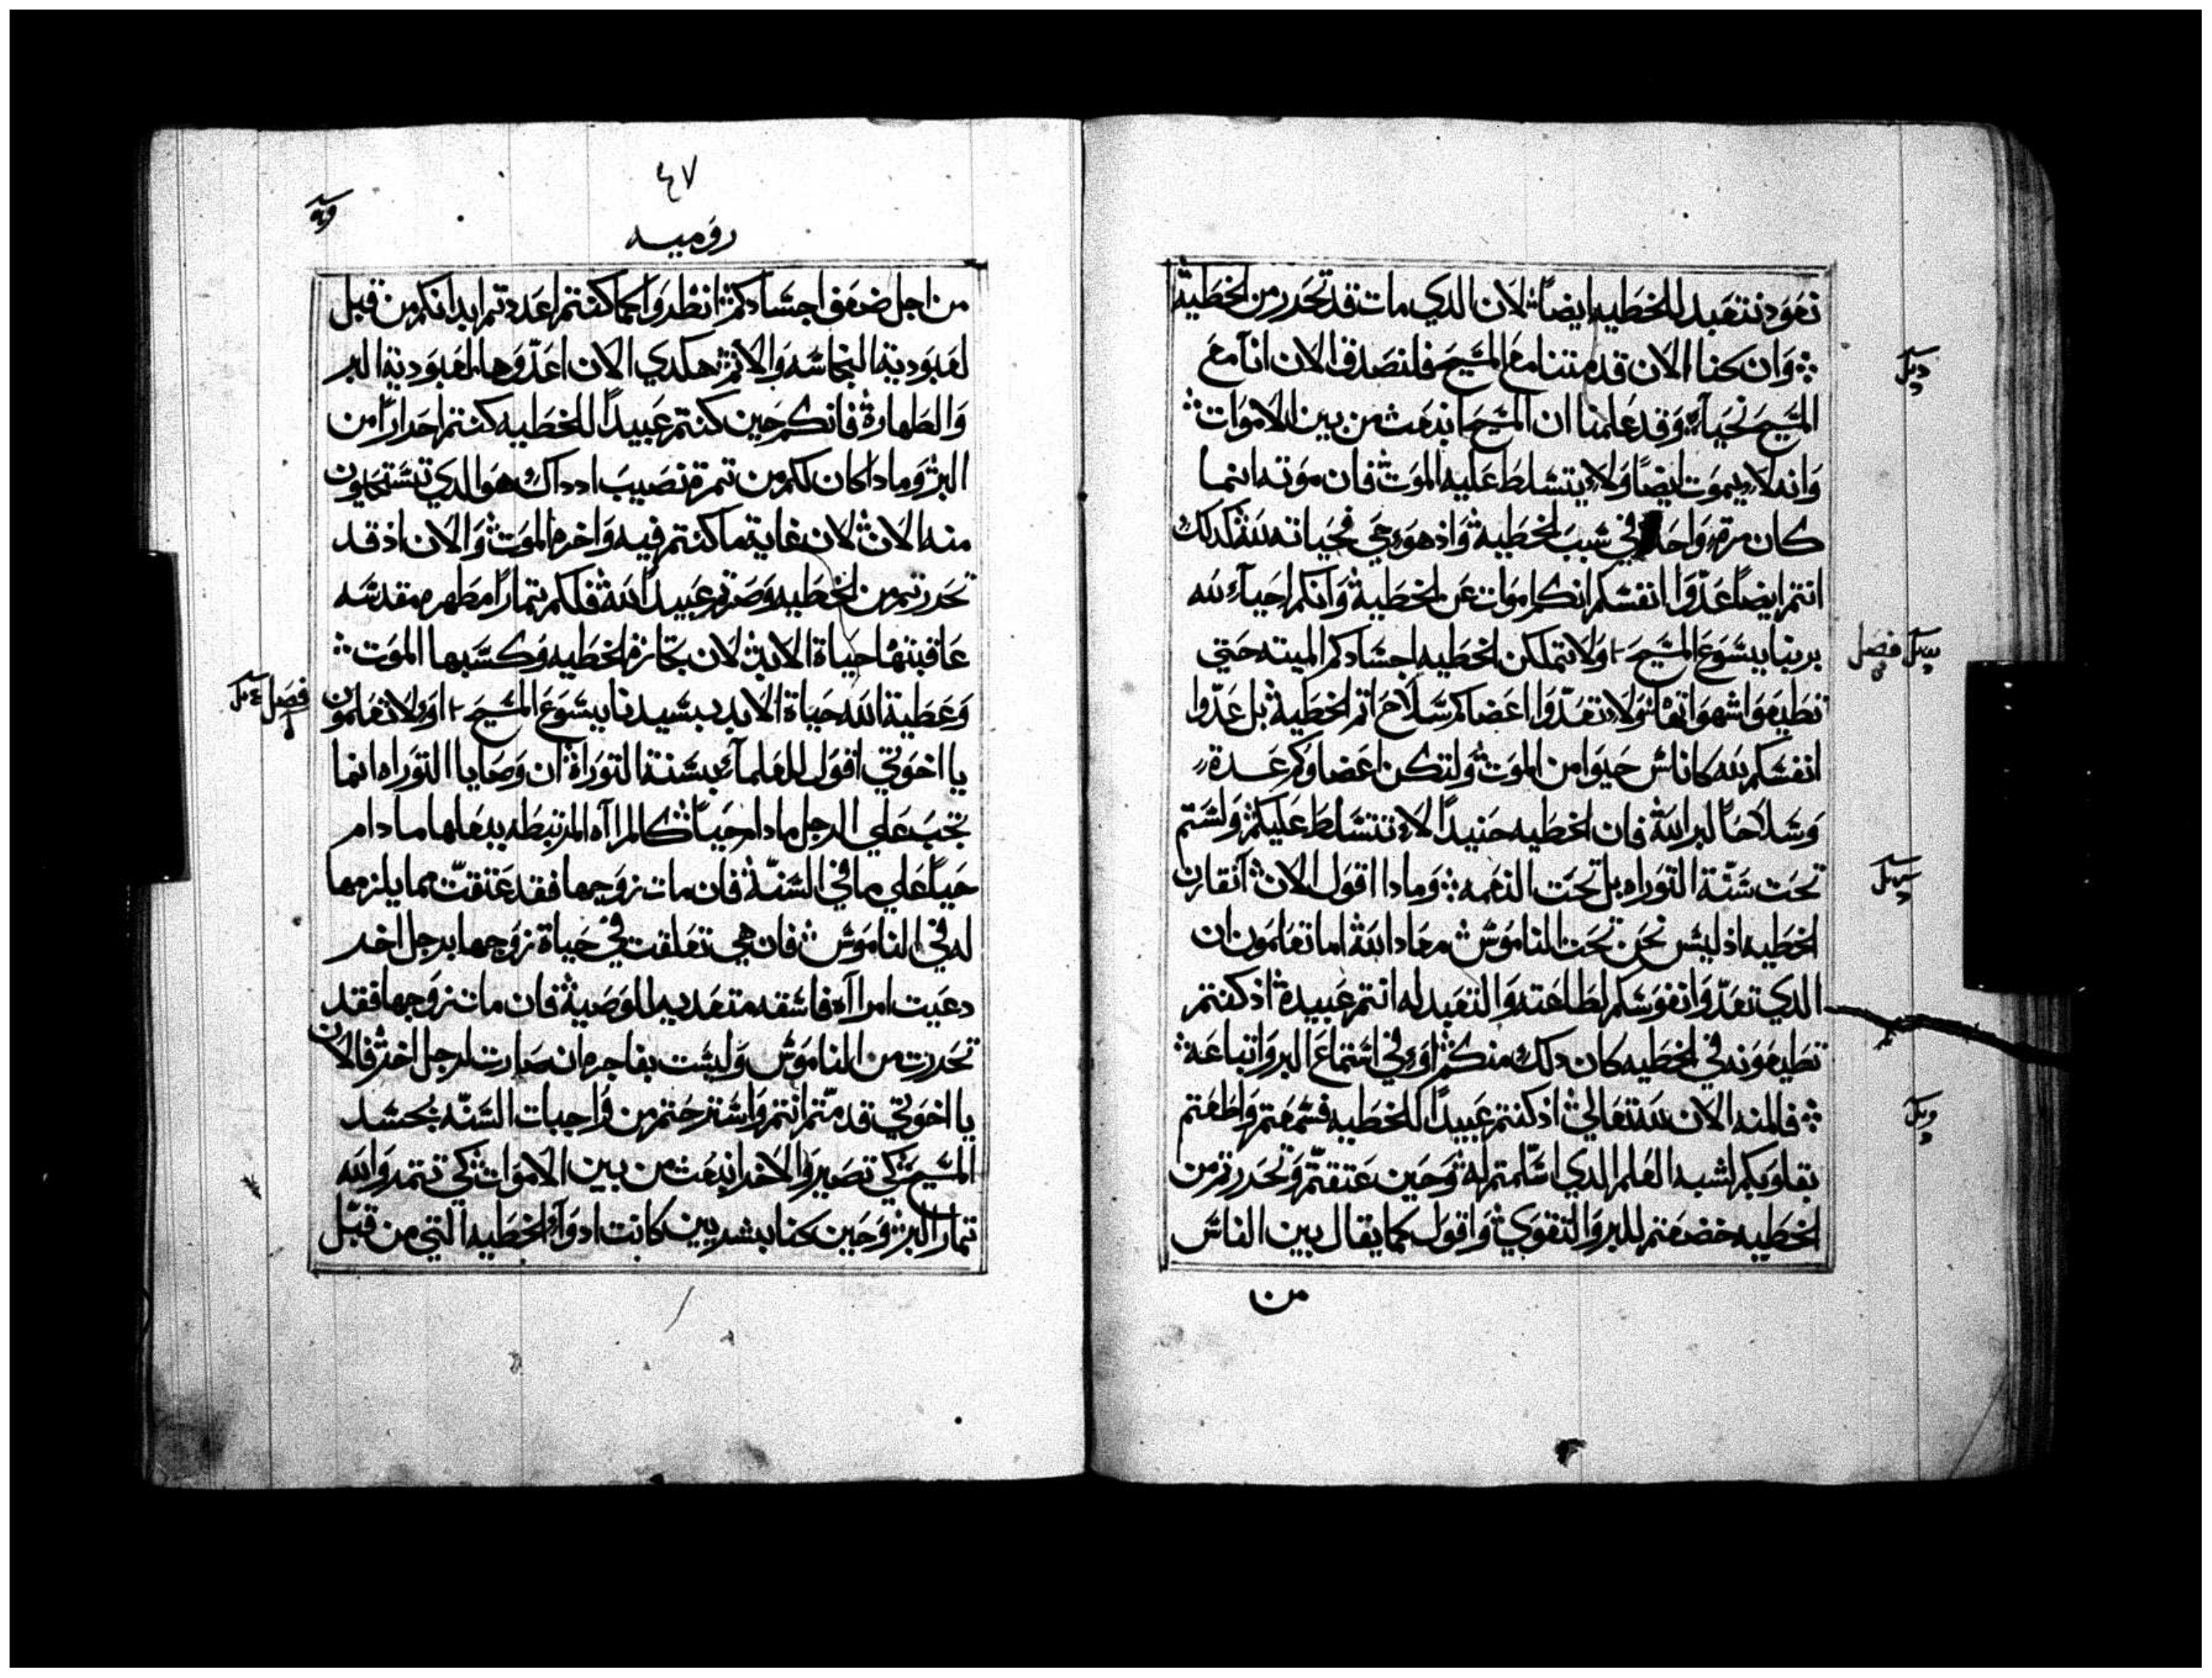 نعود نتعبد للخطيه ايضاً لان الدي مات قد تحرر من الخطية
وان كنا الان قد متنا مع المسيح فلنصدق الان انا مع
المسيح نحياء وقد علمنا ان المسيح انبعث من بين الاموات
وانه لا يموت ايضاً ولا يتسلط عليه الموت فان موته انما
كان مرة واحدة في سبب الخطية واذ هو حي فحياته لله كدلك
انتم ايضاً عدوا انفسكم انكم اموات عن الخطية وانكم احياء لله
بربنا يسوع المسيح ولا تتملكن الخطيه اجسادكم الميته حتي
تطيعوا شهواتها ولا تعدوا اعضاكم سلاح اتم الخطية بل عدوا
انفسكم لله كاناس حيوا من الموت ولتكن اعضاوكم عدة
وسلاحاً لبر الله فان الخطيه حنيداً لا تتسلط عليكم ولستم
تحت سنة التوراه بل تحت النعمه ومادا اقول الان انقارن
الخطيه اذ ليس نحن تحت الناموس معاد الله اما تعلمون ان
الدي تعدوا نفوسكم لطاعته والتعبد له انتم عبيدة اذ كنتم
تطيعونه في الخطيه كان دلك منكم او في استماع البر واتباعه
فالمنه الان لله تعالي اذ كنتم عبيداً للخطيه فسمعتم واطعتم
بقلوبكم لشبه العلم الدي اسلمتم له وحين عتقتم وتحررتم من
الخطيه خضعتم للبر والتقوي واقول كما يقال بين الناس
من
فصل
٤٧
روميه
من اجل ضعف اجسادكم انظروا كما كنتم اعددتم ابدانكم من قبل
لعبودية النجاسه والاثم هكدي الان اعدوها لعبودية البر
والطهارة فانكم حين كنتم عبيداً للخطيه كنتم احراراً من
البر وما دا كان لكم من تمرة نصيب اد داك هو الدي تستحيون
منه الان لان غاية ما كنتم فيه واخره الموت والان اذ قد
تحررتم من الخطيه وصرتم عبيداً لله فلكم تماراً مطهره مقدسه
عاقبتها حياة الابد لان تجارة الخطيه وكسبها الموت
وعطية الله حياة الابد بسيدنا يسوع المسيح اولا تعلمون
يا اخوتي اقول للعلماء بسنة التوراة ان وصايا التوراه انما
تجب علي الرجل مادام حياً كالمراه المرتبطه ببعلها ما دام
حياً علي ما في السنة فان مات زوجها فقد عتقت مما يلزمها
له في الناموس فان هي تعلقت في حياة زوجها برجل اخر
دعيت امراه فاسقه متعديه للوصية فان مات زوجها فقد
تحررت من الناموس وليست بفاجره ان صارت لرجل اخر فالان
يا اخوتي قد متم انتم واسترحتم من واجبات السنه بجسد
المسيح كي تصيروا لاخر انبعث من بين الاموات كي تتمروا لله
تمار البر وحين كنا بشريين كانت ادواء الخطيه التي من قبل
فصل